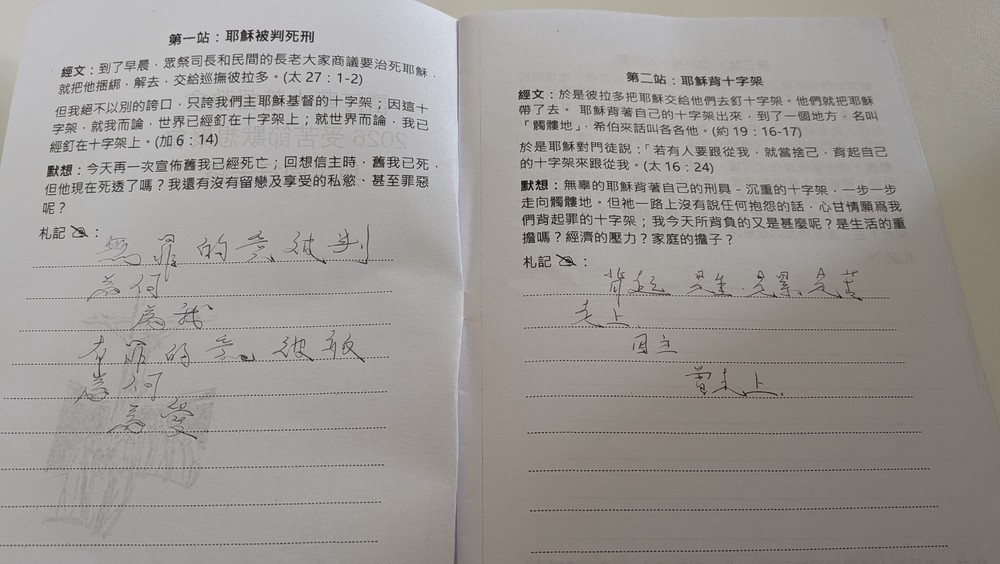 第一站：耶穌被判死刑
經文：到了早晨，眾祭司長和民間的長老大家商議要治死耶穌，
就把他捆綁，解去，交給巡撫彼拉多。(太 27：1-2)
但我絕不以別的誇口，只誇我們主耶穌基督的十字架；因這十
字架，就我而論，世界已經釘在十字架上；就世界而論，我已
經釘在十字架上。(加 6：14)
默想：今天再一次宣佈舊我已經死亡；回想信主時，舊我已死，
但他現在死透了嗎？我還有沒有留戀及享受的私慾、甚至罪惡
呢？
札記：
無罪的 被判
為何
為我
有罪的 被
為何
為愛
第二站：耶穌背十字架
經文：於是彼拉多把耶穌交給他們去釘十字架。他們就把耶穌
帶了去。 耶穌背著自己的十字架出來，到了一個地方，名叫
「髑髏地」，希伯來話叫各各他。(約 19：16-17)
於是耶穌對門徒說：「若有人要跟從我，就當捨己，背起自己
的十字架來跟從我。(太 16：24)
默想：無辜的耶穌背著自己的刑具－沉重的十字架，一步一步
走向髑髏地。但祂一路上沒有說任何抱怨的話，心甘情願爲我
們背起罪的十字架；我今天所背負的又是甚麼呢？是生活的重
擔嗎？經濟的壓力？家庭的擔子？
札記：
背起 是重.是累.是苦
走上
因主
曾走上.